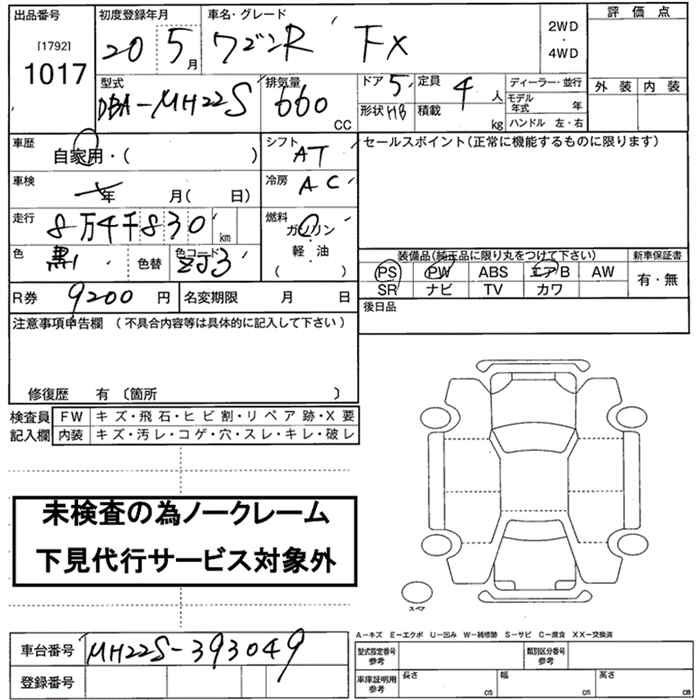 出品番号 初度登録年月 車名・グレード 2WD ・ 4WD 評価点
[1792]
1017 20 5月 ワゴンR FX
外装 内装
型式 排気量 ドア 5 定員 4人 ディーラー・並行
DBA-MH22S 660 CC 形状 HB 積載 kg モデル年式 年
ハンドル 左・右
車歴 自家用・( ) シフト AT セールスポイント(正常に機能するものに限ります)
車検 年 月( 日) 冷房 AC
走行 8万4千830 km 燃料 ガソリン 軽・油 ( )
色 黒 色替 色コード ZJ3
装備品(純正品に限り丸をつけて下さい) 新車保証書
PS PW ABS エアB AW 有・無
SR ナビ TV カワ
R券 9200 円 名変期限 月 日 後日品
注意事項申告欄 (不具合内容等は具体的に記入して下さい)
修復歴 有 〔箇所 〕
検査員記入欄 FW キズ・飛石・ヒビ割・リペア跡・X要
内装 キズ・汚レ・コゲ・穴・スレ・キレ・破レ
未検査の為ノークレーム
下見代行サービス対象外
スペア
A-キズ E-エクボ U-凹み W-補修跡 S-サビ C-腐食 XX-交換済
車台番号 MH22S-393049 型式指定番号 参考 類別区分番号 参考
登録番号 車庫証明用 参考 長さ cm 幅 cm 高さ cm